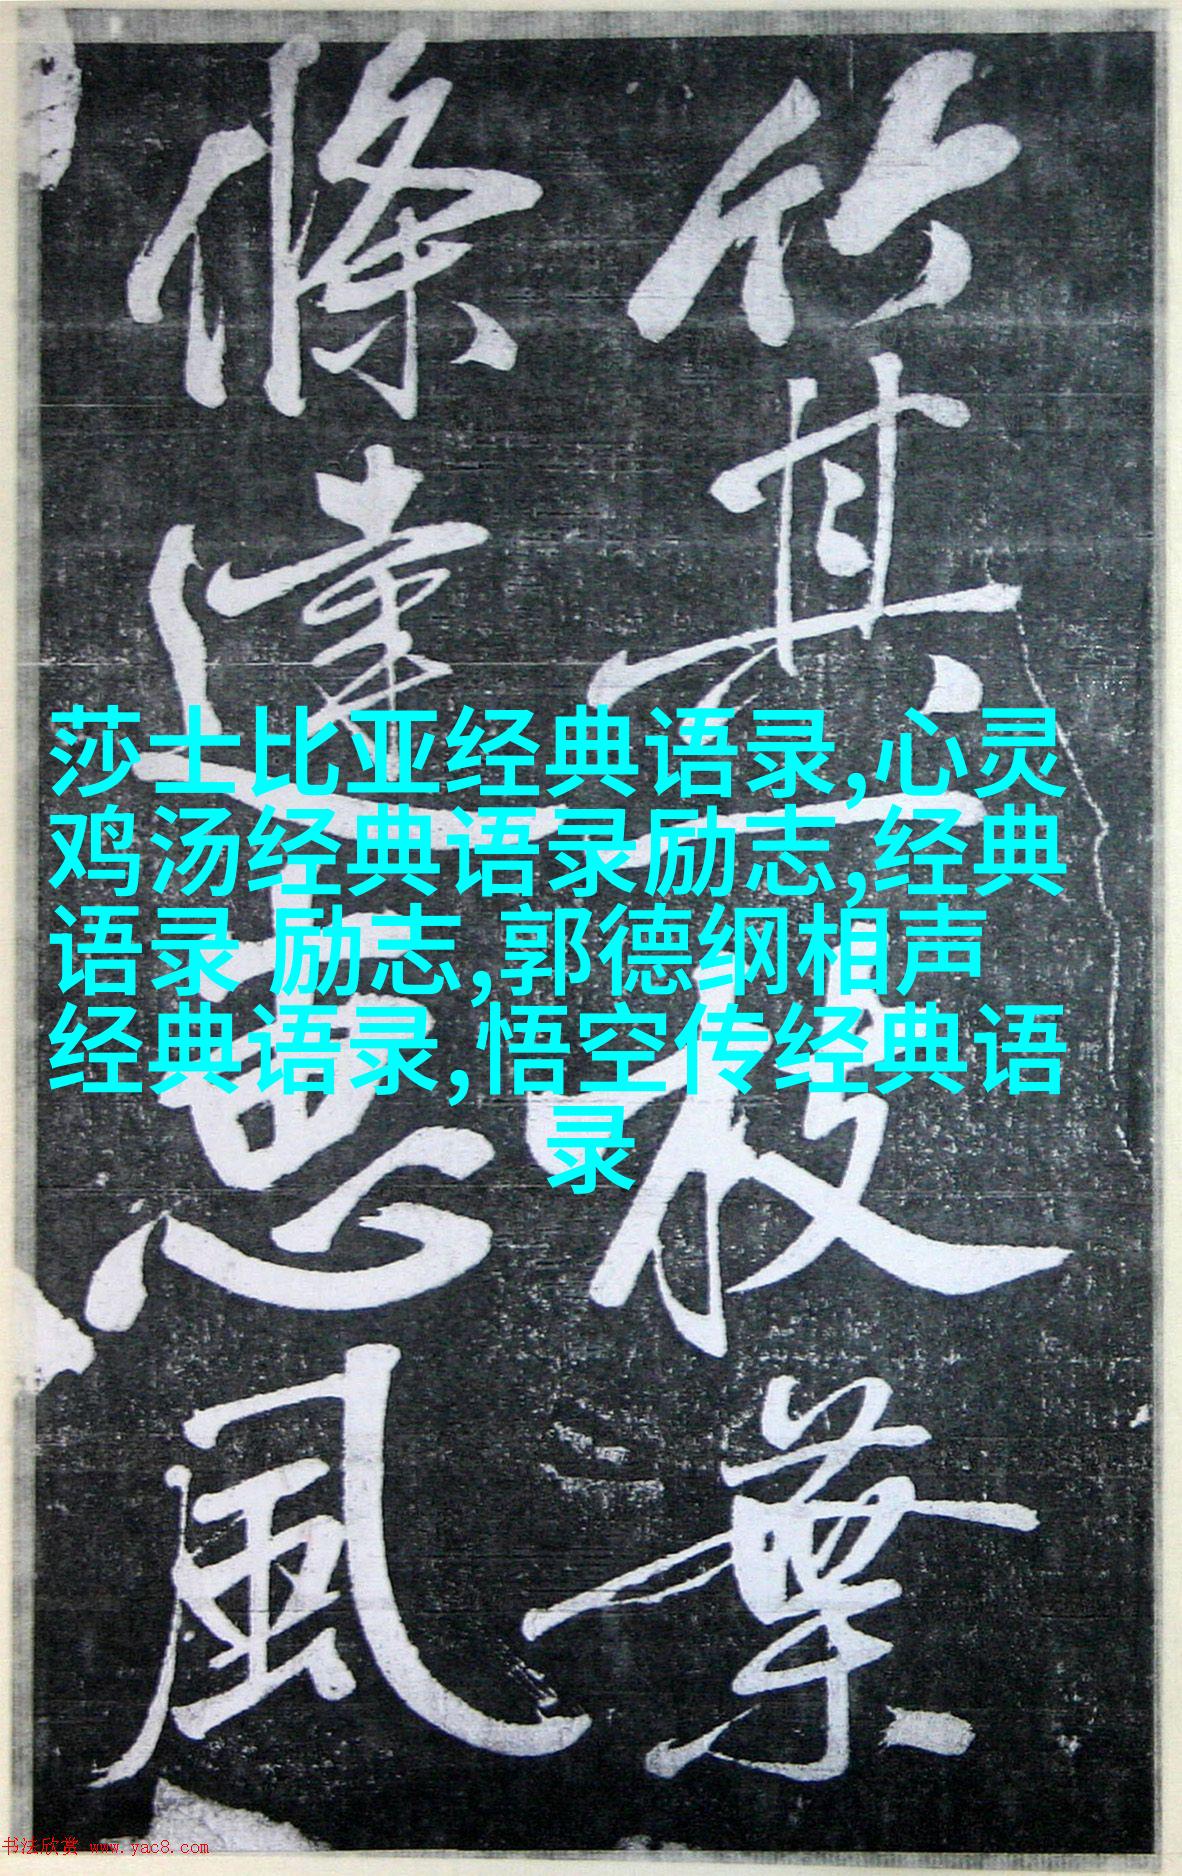 竹其枝葉
條達惠風
莎士比亚经典语录,心灵
鸡汤经典语录励志,经典
语录 励志,郭德纲相声
经典语录,悟空传经典语
录
书法欣赏 www.yac8.com